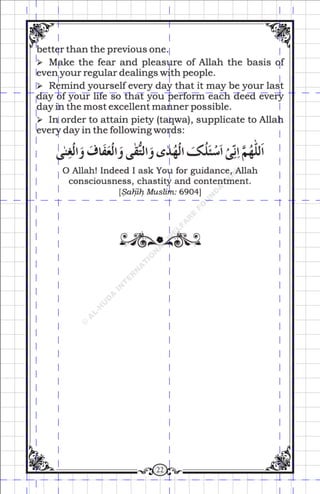 better than the previous one.
➢ Make the fear and pleasure of Allah the basis of
even your regular dealings with people.
➢ Remind yourself every day that it may be your last
day of your life so that you perform each deed every
day in the most excellent manner possible.
➢ In order to attain piety (taqwa), supplicate to Allah
every day in the following words:
اَللّٰهُمَّ اِنِّىْ اَسْئَلُكَ الْهُدٰى وَالتُّقٰى وَالْعَفَافَ وَالْغِنٰى
O Allah! Indeed I ask You for guidance, Allah
consciousness, chastity and contentment.
[Saḥīḥ Muslim: 6904]
© AL-HUDA INTERNATIONAL WELFARE FOUNDATION
22